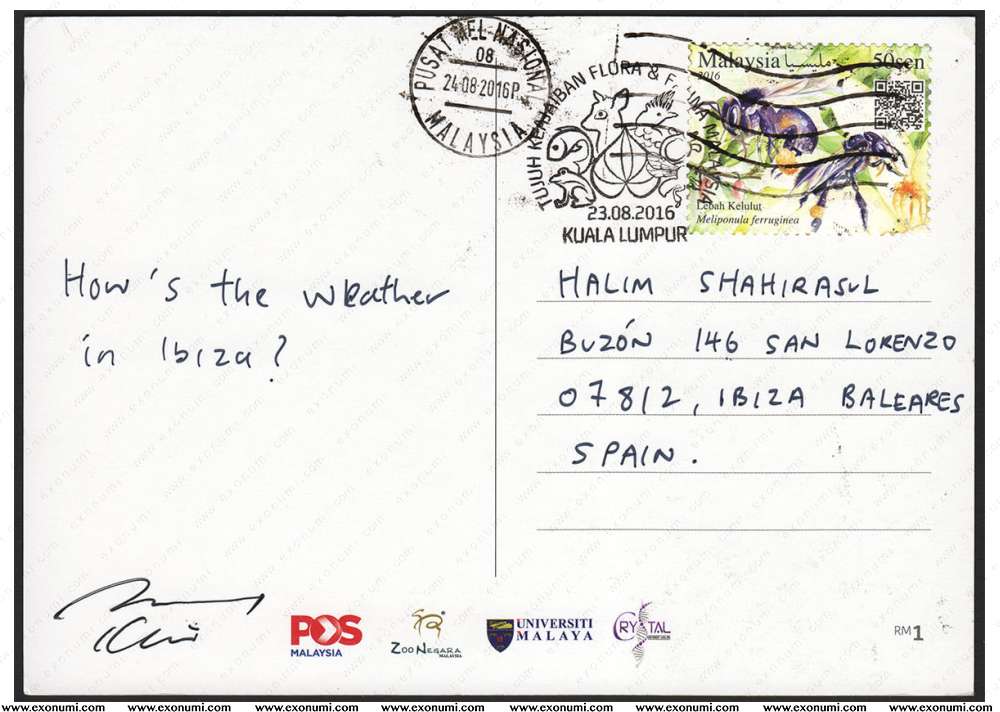 PUSAT MEL NASIONAL
08
24-08-2016P
MALAYSIA
TUJUH KEAJAIBAN FLORA & FAUNA MALAYSIA
23.08.2016
KUALA LUMPUR
Malaysia مليسيا 50sen
2016
Lebah Kelulut
Meliponula ferruginea
How's the weather
in Ibiza?
HALIM SHAHIRASUL
BUZÓN 146 SAN LORENZO
07812, IBIZA BALEARES
SPAIN.
POS
MALAYSIA
ZOO NEGARA
MALAYSIA
UNIVERSITI
MALAYA
CRYSTAL
RM1
www.exonumi.com www.exonumi.com www.exonumi.com www.exonumi.com www.exonumi.com www.exonumi.com www.exonumi.com www.exonumi.com